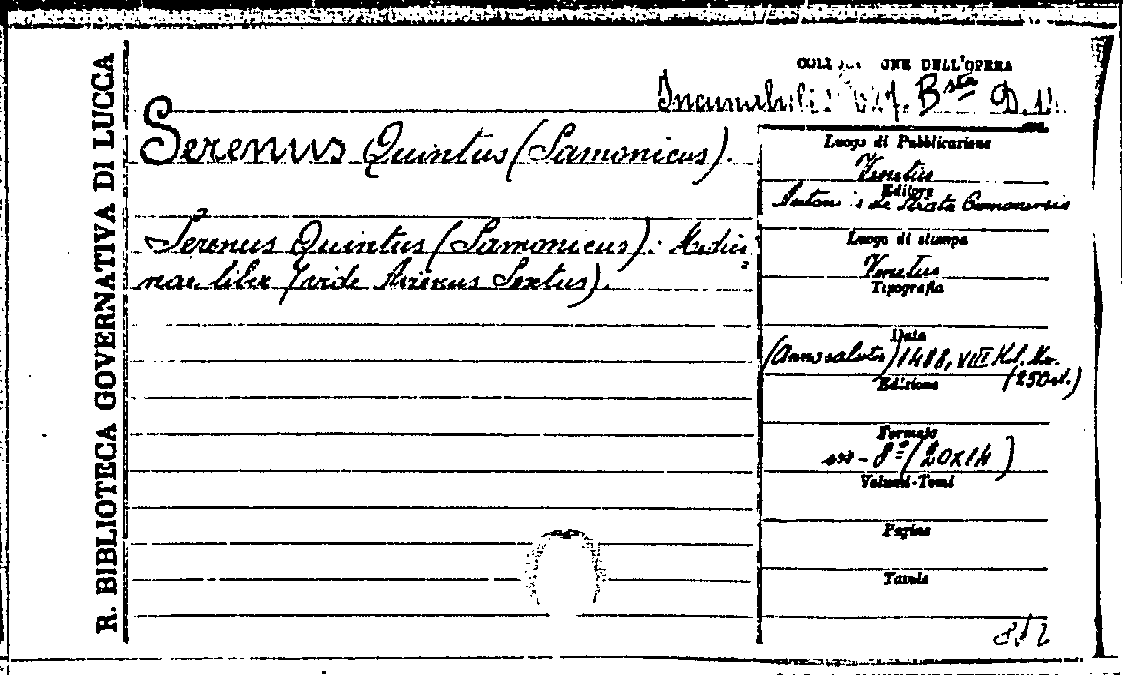 R. BIBLIOTECA GOVERNATIVA DI LUCCA
DELL'OPERA
Bsta D. 11.
Serenus Quintus (Samonicus).
Serenus Quintus (Samonicus): Medici
nae liber (vide Avienus Sextus).
Luogo di Pubblicazione
Venetiis
Editore
de Strata Cremonensis
Luogo di stampa
Venetiis
Tipografia
Data
(Anno salutis) 1488, VIII Kal. Nov.
Edizione
Formato
in - 8º (20x14)
Volumi-Tomi
Pagine
Tavole